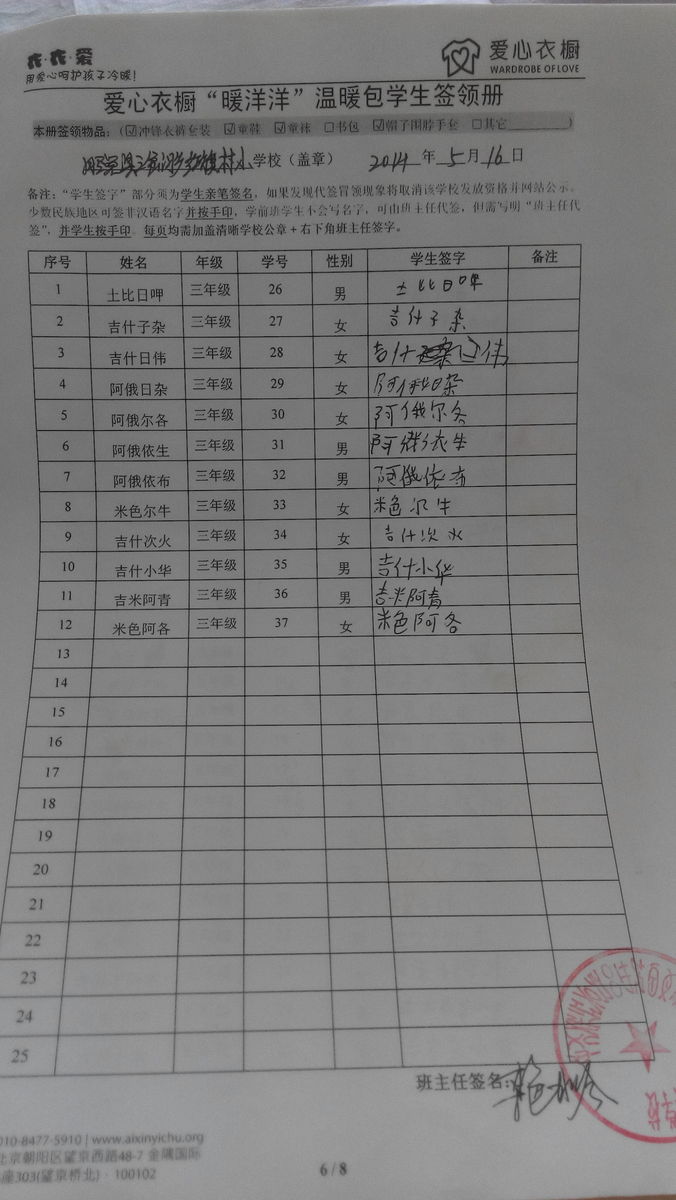 衣·衣·爱
用爱心呵护孩子冷暖!
爱心衣橱
WARDROBE OF LOVE
爱心衣橱“暖洋洋”温暖包学生签领册
本册签领物品：(☑冲锋衣裤套装 ☑童鞋 ☑童袜 □书包 ☑帽子围脖手套 □其它________)
学校（盖章） 2014年5月16日
备注：“学生签字”部分须为学生亲笔签名，如果发现代签冒领现象将取消该学校发放资格并网站公示。
少数民族地区可签非汉语名字并按手印，学前班学生不会写名字，可由班主任代签，但需写明“班主任代
签”，并学生按手印。每页均需加盖清晰学校公章+右下角班主任签字。
序号 姓名 年级 学号 性别 学生签字 备注
1 土比日呷 三年级 26 男 土比日呷
2 吉什子杂 三年级 27 女 吉什子杂
3 吉什日伟 三年级 28 女 吉什日伟
4 阿俄日杂 三年级 29 女 阿俄日杂
5 阿俄尔各 三年级 30 女 阿俄尔各
6 阿俄依生 三年级 31 男 阿俄依生
7 阿俄依布 三年级 32 男 阿俄依布
8 米色尔牛 三年级 33 女 米色尔牛
9 吉什次火 三年级 34 女 吉什次火
10 吉什小华 三年级 35 男 吉什小华
11 吉米阿青 三年级 36 男 吉米阿青
12 米色阿各 三年级 37 女 米色阿各
13
14
15
16
17
18
19
20
21
22
23
24
25
班主任签名:
010-8477-5910 | www.aixinyichu.org
北京朝阳区望京西路48-7 金隅国际
座303(望京桥北) · 100102
6 / 8